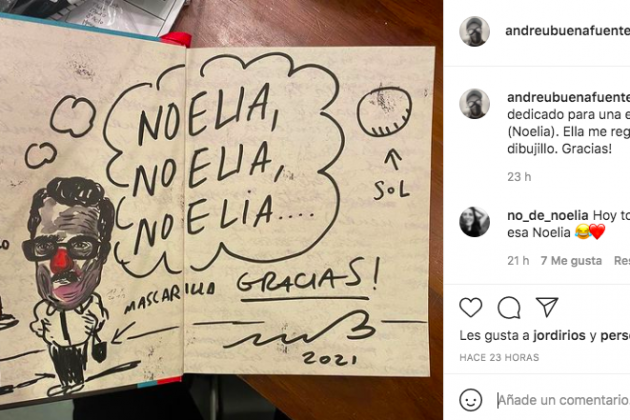 NOELIA,
NOELIA,
NOELIA....
SOL
MASCARILLA
GRACIAS!
2021
andreubuenafuente
andreubuenafuente
dedicado para una
(Noelia). Ella me
dibujillo. Gracias!
23 h
no_de_noelia Hoy
esa Noelia 😂❤️
21 h 7 Me gusta
Les gusta a jordirios y
HACE 23 HORAS
Añade un comentario